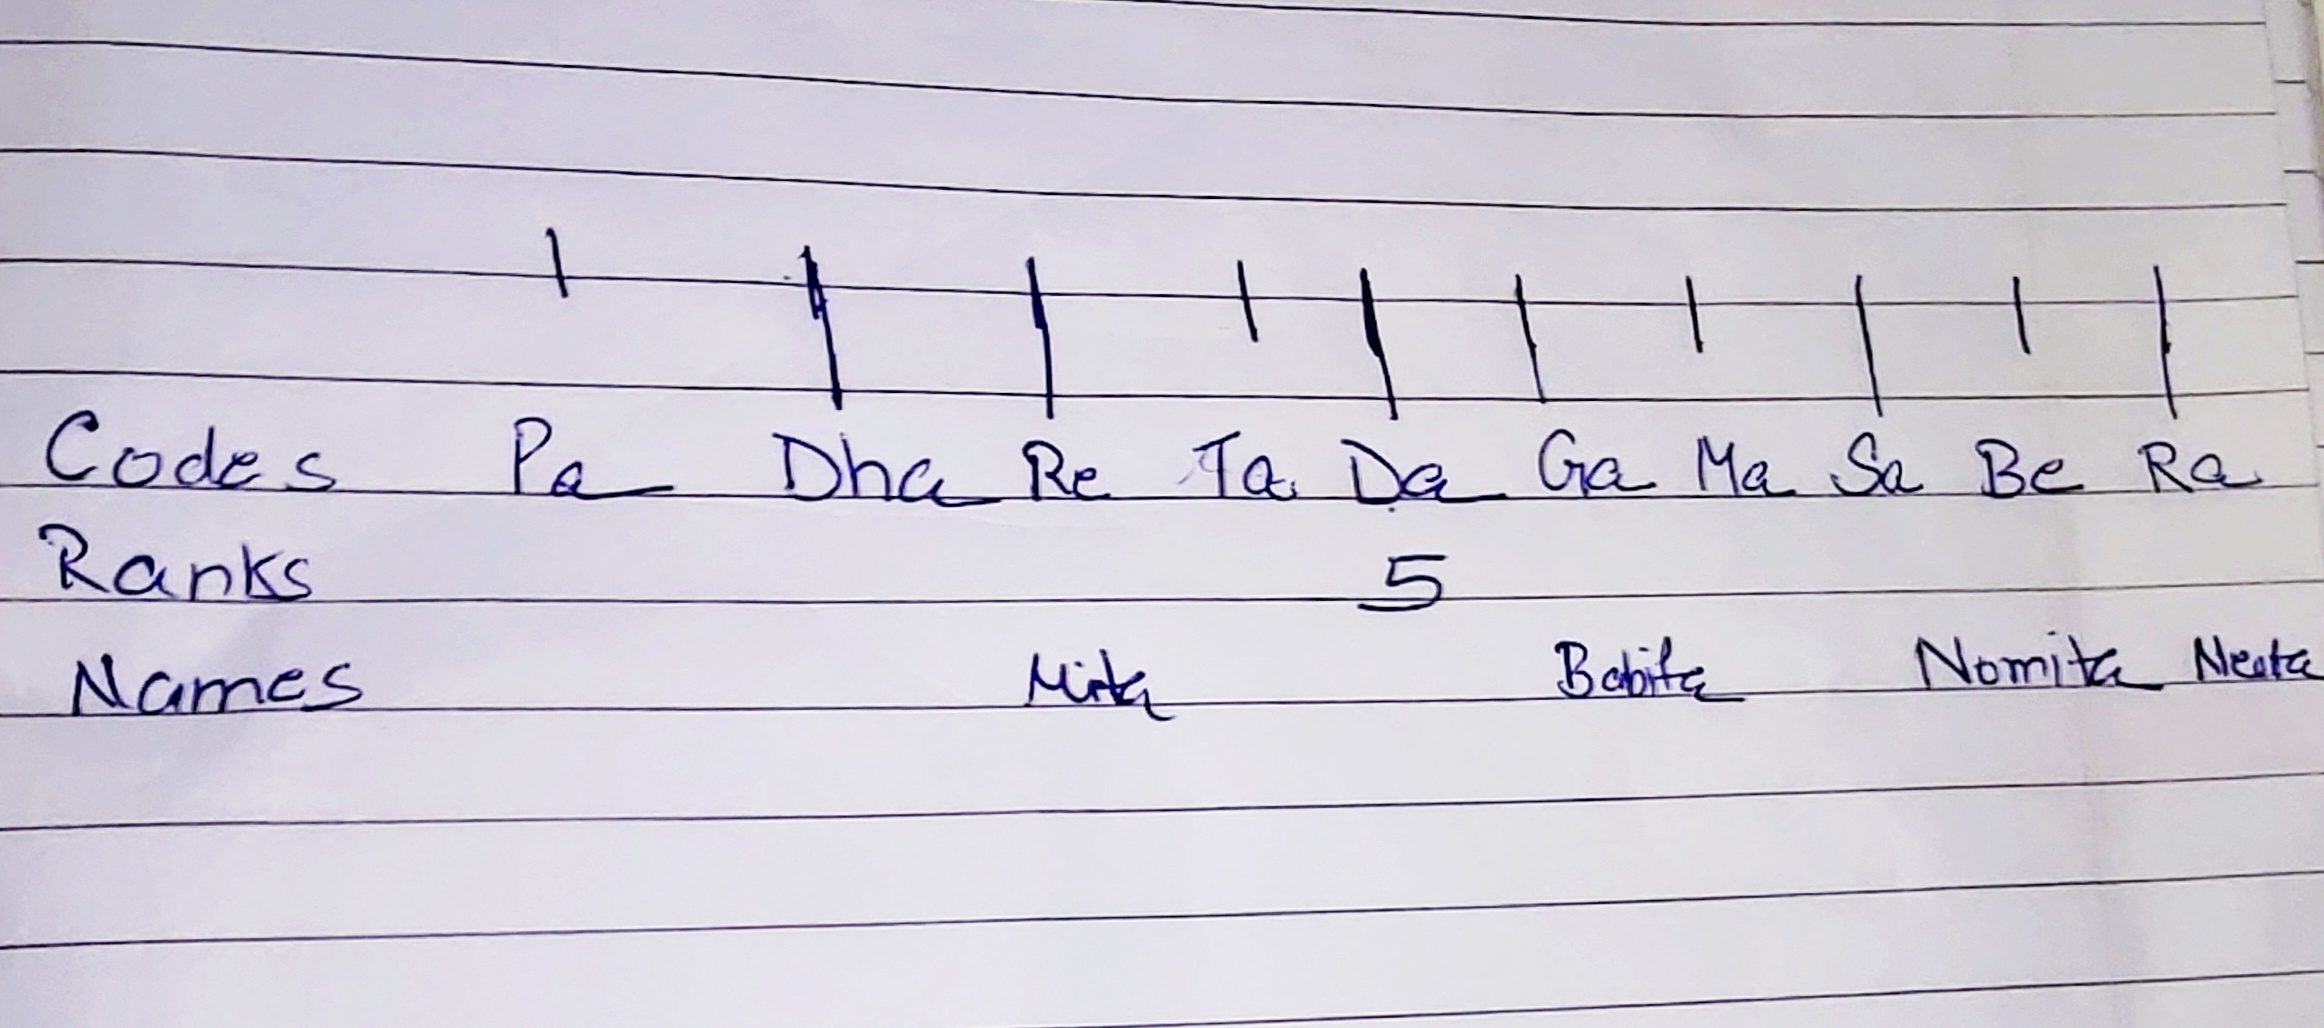 Codes Pa Dha Re Ta Da Ga Ma Sa Be Ra
Ranks 5
Names Mita Babita Nomita Neeta